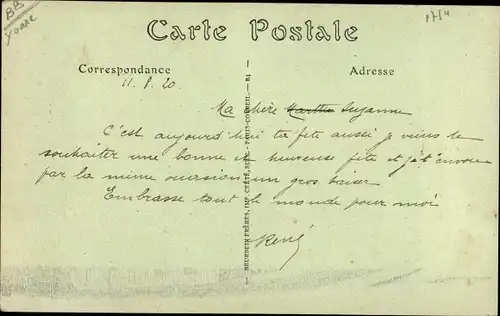 BB
YONNE
Carte Postale
Correspondance
Adresse
11. 8. 20
Ma chère Marthe Suzanne
C'est aujourd'hui ta fête aussi je viens te
souhaiter une bonne et heureuse fête et je t'envoie
par la même occasion un gros baiser
Embrasse tout le monde pour moi
René
NEURDEIN FRÈRES, IMP. CRÉTÉ, SUCC. - PARIS-CORBEIL.